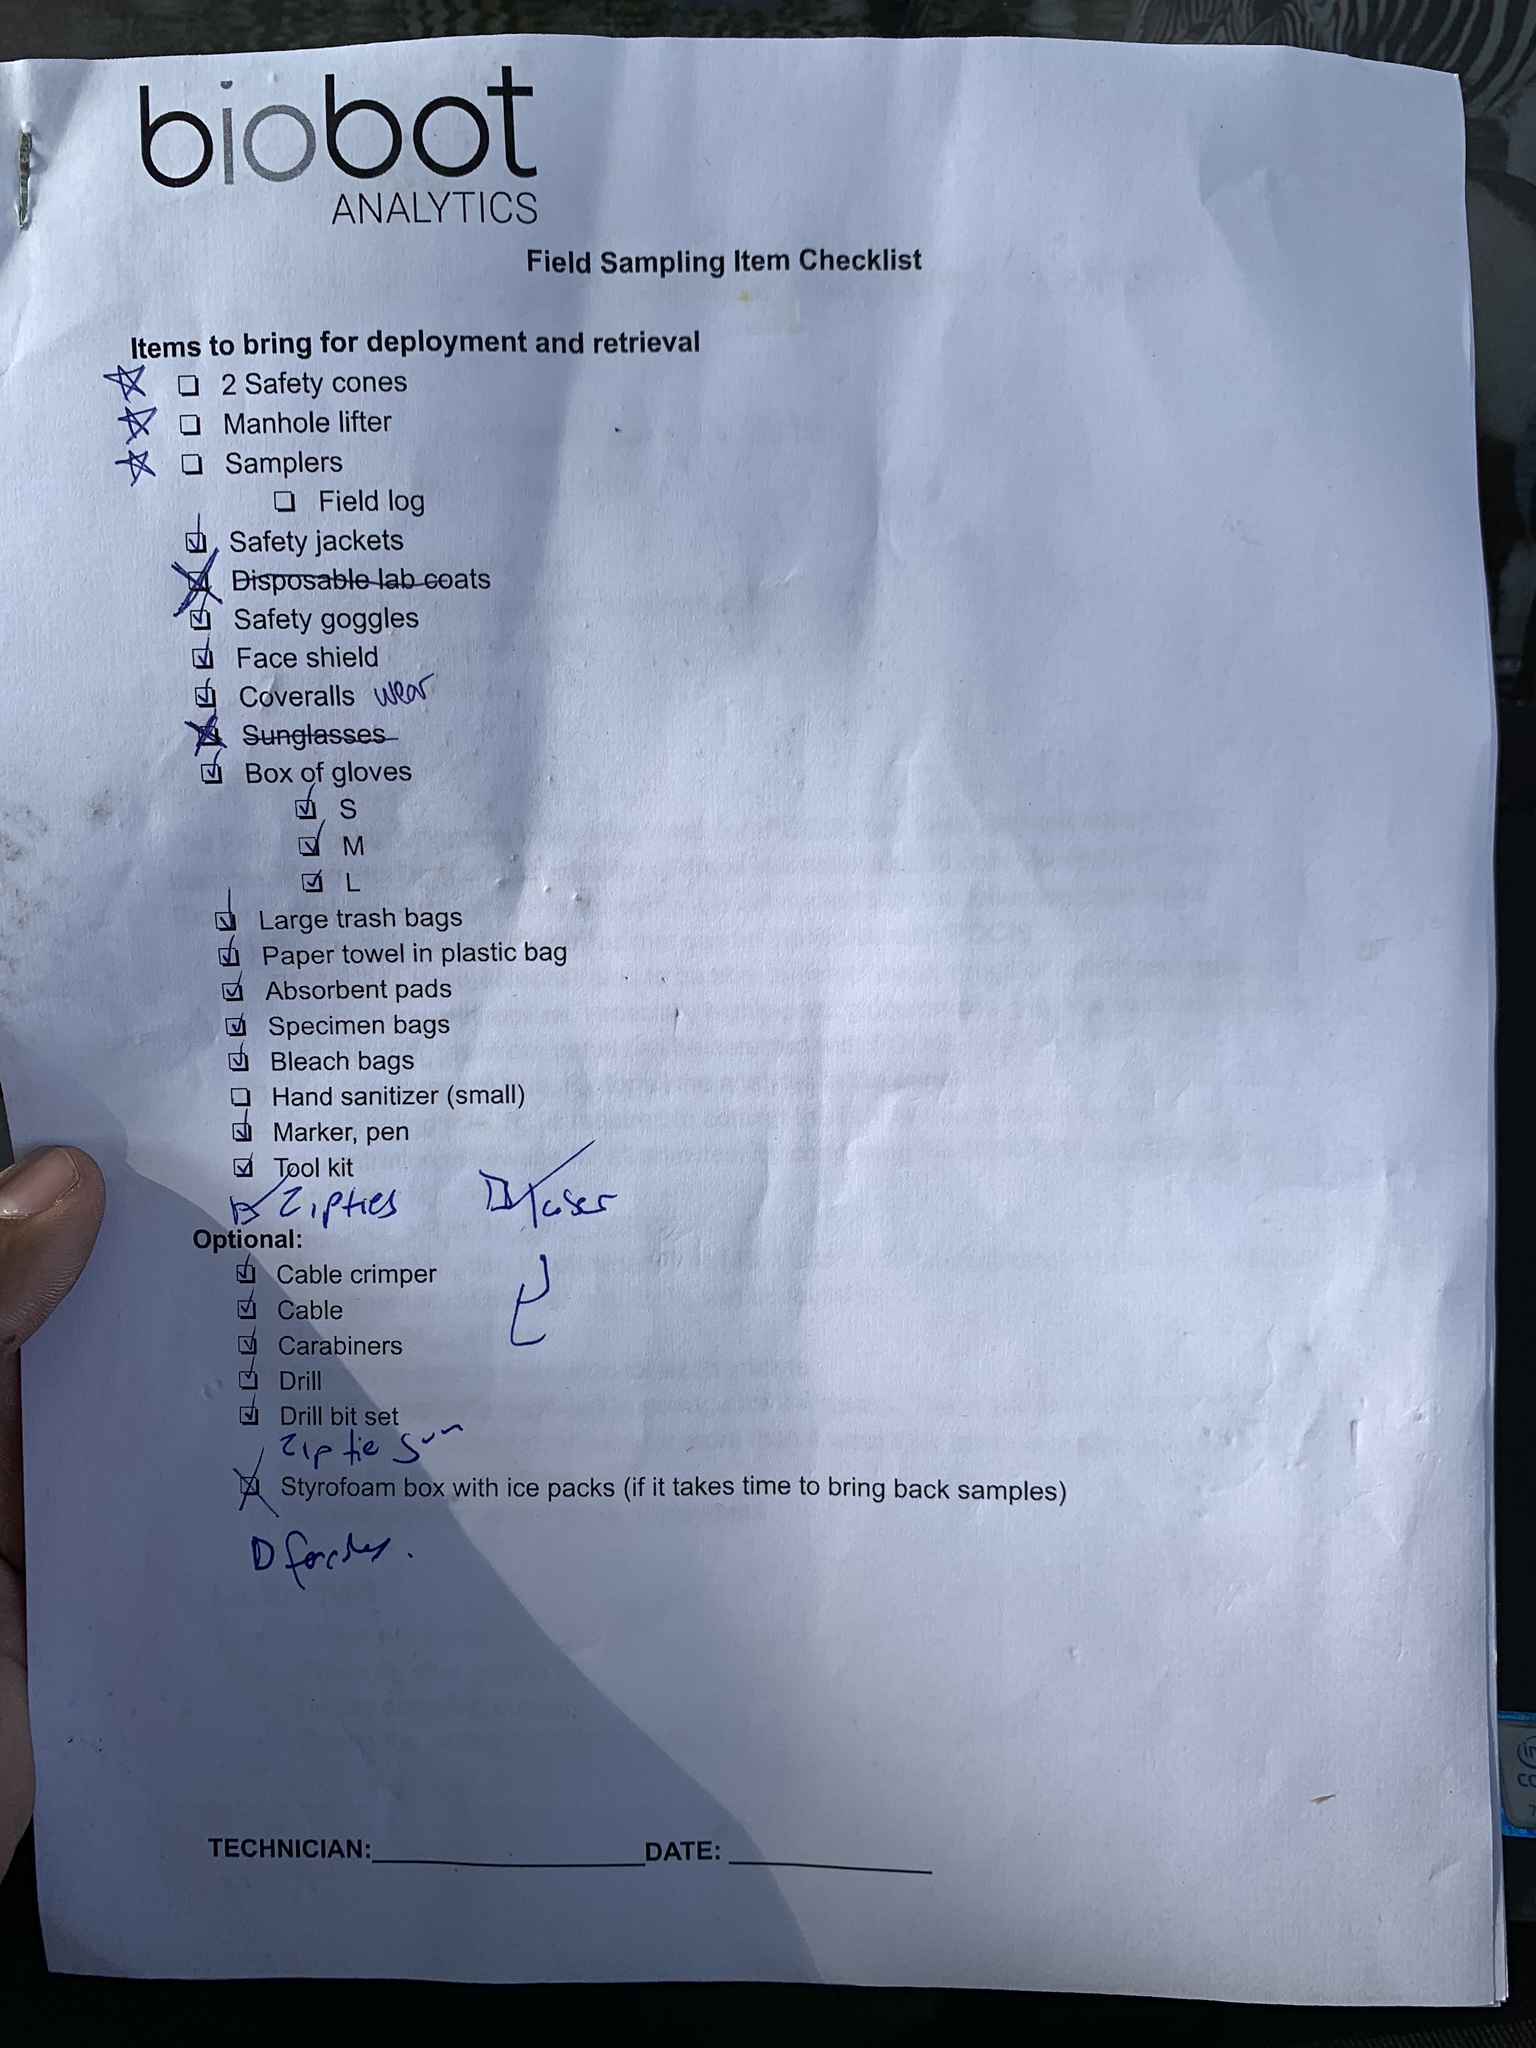 biobot
ANALYTICS
Field Sampling Item Checklist
Items to bring for deployment and retrieval
2 Safety cones
Manhole lifter
Samplers
Field log
Safety jackets
Disposable lab coats
Safety goggles
Face shield
Coveralls wear
Sunglasses
Box of gloves
S
M
L
Large trash bags
Paper towel in plastic bag
Absorbent pads
Specimen bags
Bleach bags
Hand sanitizer (small)
Marker, pen
Tool kit
Zipties
Optional:
Cable crimper
Cable
Carabiners
Drill
Drill bit set
Zip tie gun
Styrofoam box with ice packs (if it takes time to bring back samples)
TECHNICIAN: DATE: